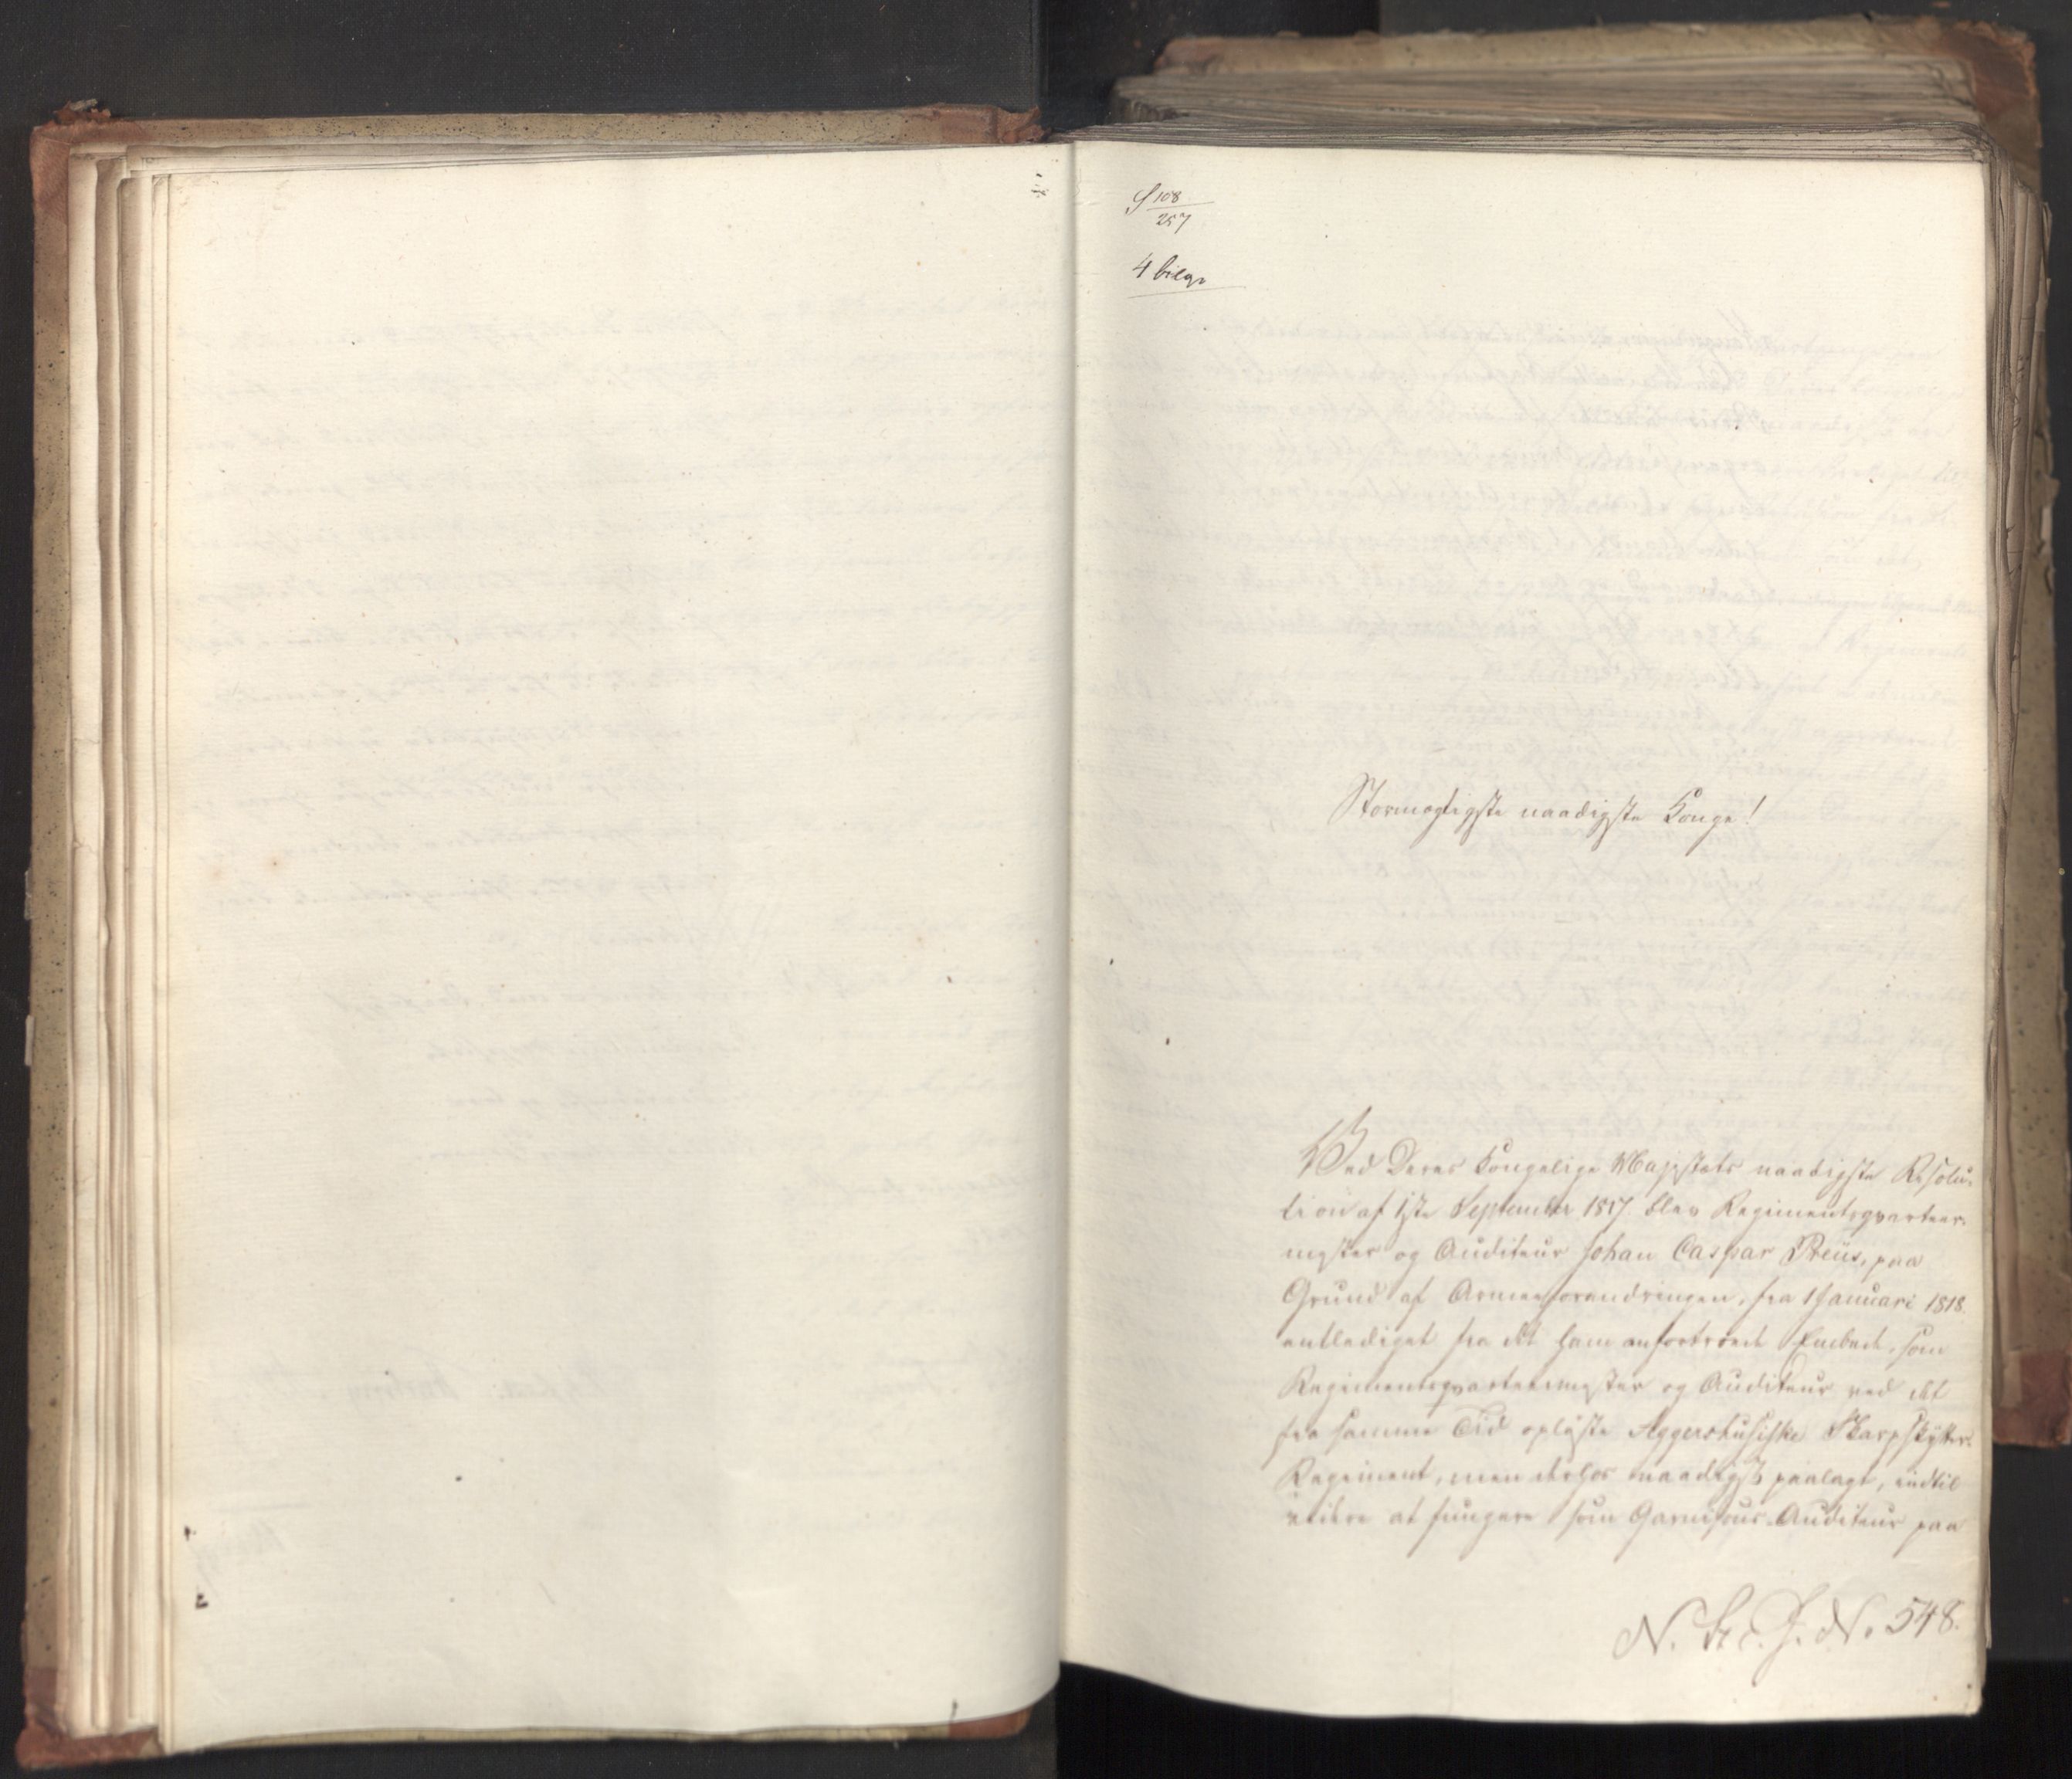 S 108/257
4 bilag
Stormægtigste naadigste Konge!
Ved Deres Kongelige Majestæts naadigste Resolu-
tion af 1ste September 1817 blev Regimentsqvarteer-
mester og Auditeur Johan Caspar Preüs, paa
Grund af Armeeforandringen, fra 1 Januari 1818.
entlediget fra det ham anfortroede Embede, som
Regimentsqvarteermester og Auditeur ved det
fra samme Tid opløste Aggershusiske Skarpskytter-
Regiment, men derhos naadigst paalagt, indtil
videre at fungere som Garnisons-Auditeur paa
N. St. C. J. No. 548.